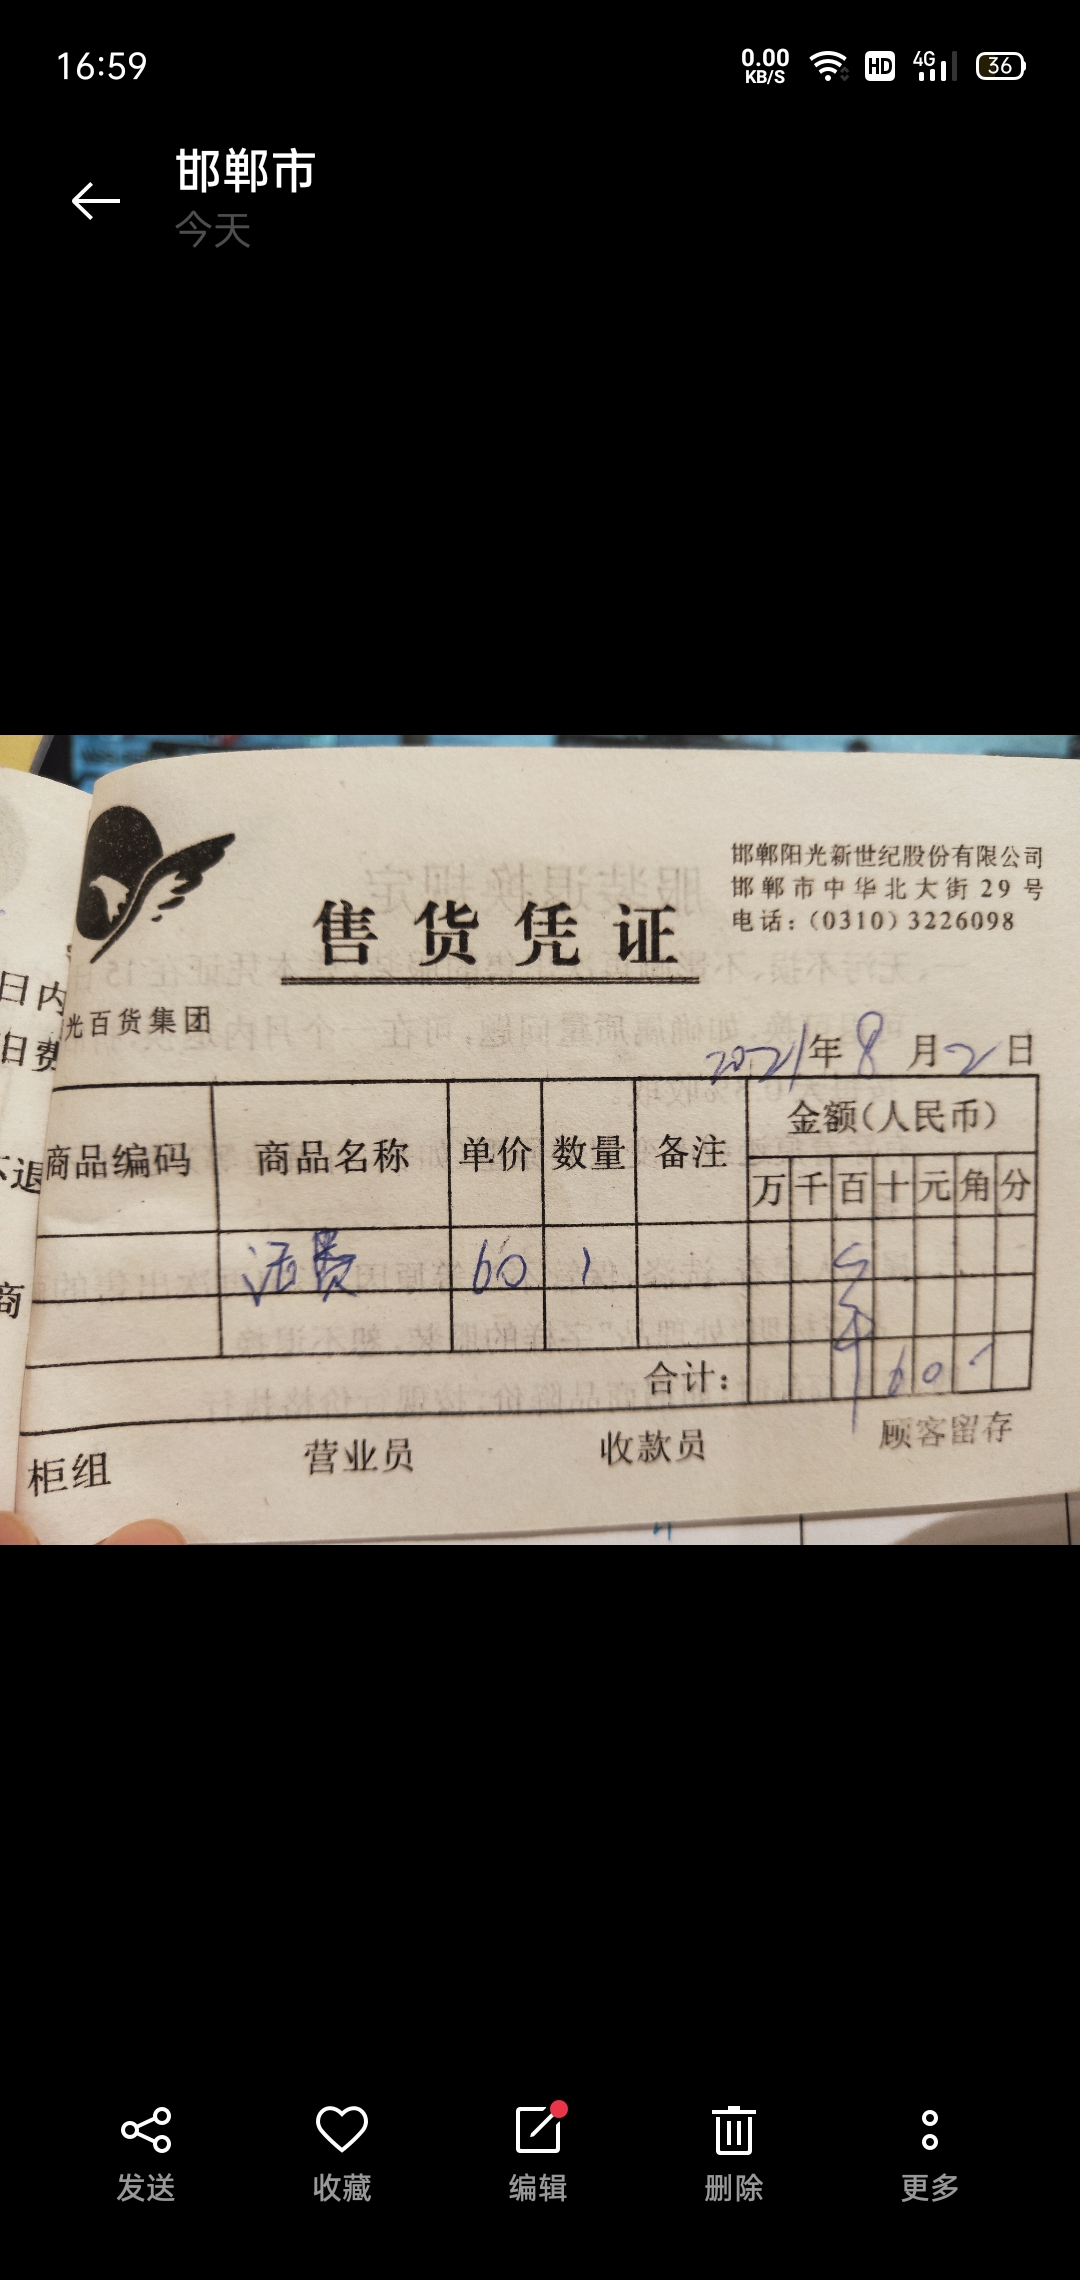 16:59
0.00 KB/S HD 4G 36
邯郸市
今天
邯郸阳光新世纪股份有限公司
邯郸市中华北大街29号
电话：(0310) 3226098
售货凭证
光百货集团
日内
日费
2021年8月2日
商品编码 商品名称 单价 数量 备注 金额(人民币)
万 千 百 十 元 角 分
不退
话费 60 1
商
合计： 60
柜组 营业员 收款员 顾客留存
发送 收藏 编辑 删除 更多